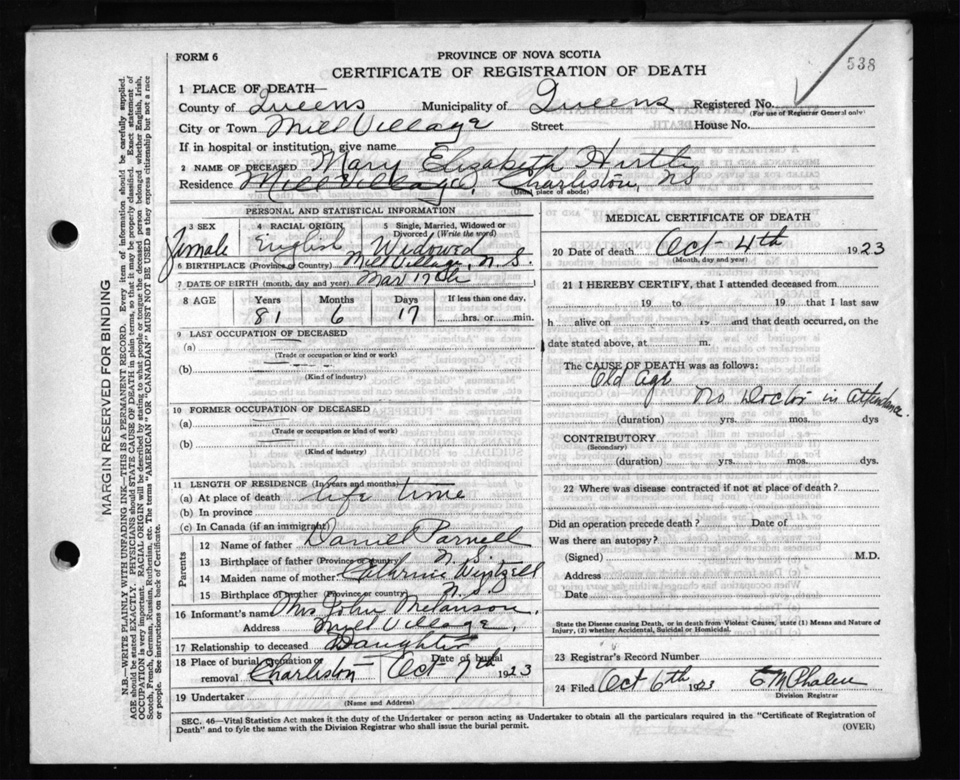 FORM 6
PROVINCE OF NOVA SCOTIA
CERTIFICATE OF REGISTRATION OF DEATH
538
1 PLACE OF DEATH—
County of Queens Municipality of Queens Registered No.
(For use of Registrar General only)
City or Town Mill Village Street House No.
If in hospital or institution, give name
2 NAME OF DECEASED Mary Elizabeth Hirtle
Residence Mill Village, Charliston, N.S.
(Usual place of abode)
PERSONAL AND STATISTICAL INFORMATION
3 SEX 4 RACIAL ORIGIN 5 Single, Married, Widowed or Divorced (Write the word)
Female English Widowed
6 BIRTHPLACE (Province or Country) Mill Village, N.S.
7 DATE OF BIRTH (month, day and year) Mar 17th
8 AGE Years Months Days If less than one day,
81 6 17 hrs. or min.
9 LAST OCCUPATION OF DECEASED
(a)
(Trade or occupation or kind or work)
(b)
(Kind of industry)
10 FORMER OCCUPATION OF DECEASED
(a)
(Trade or occupation or kind of work)
(b)
(Kind of industry)
11 LENGTH OF RESIDENCE (In years and months)
(a) At place of death life time
(b) In province
(c) In Canada (if an immigrant)
Parents
12 Name of father Daniel Parnell
13 Birthplace of father (Province or country) N.S.
14 Maiden name of mother Catherine Wintzell
15 Birthplace of mother (Province or country) N.S.
16 Informant's name Mrs John Melanson,
Address Mill Village,
17 Relationship to deceased Daughter
18 Place of burial, cremation or removal Charliston Date of burial Oct 7th 1923
19 Undertaker
(Name and Address)
MEDICAL CERTIFICATE OF DEATH
20 Date of death Oct - 4th 1923
(Month, day and year)
21 I HEREBY CERTIFY, that I attended deceased from
19 to 19 that I last saw
h alive on 19 and that death occurred, on the
date stated above, at m.
The CAUSE OF DEATH was as follows:
Old Age
No Doctor in attendance.
(duration) yrs. mos. dys
CONTRIBUTORY
(Secondary)
(duration) yrs. mos. dys.
22 Where was disease contracted if not at place of death?
Did an operation precede death? Date of
Was there an autopsy?
(Signed) M.D.
Address
Date
State the Disease causing Death, or in death from Violent Causes, state (1) Means and Nature of
Injury, (2) whether Accidental, Suicidal or Homicidal.
23 Registrar's Record Number
24 Filed Oct 6th 1923
Division Registrar
SEC. 46—Vital Statistics Act makes it the duty of the Undertaker or person acting as Undertaker to obtain all the particulars required in the "Certificate of Registration of
Death" and to fyle the same with the Division Registrar who shall issue the burial permit. (OVER)
MARGIN RESERVED FOR BINDING
N.B.—WRITE PLAINLY WITH UNFADING INK—THIS IS A PERMANENT RECORD. Every item of information should be carefully supplied.
AGE should be stated EXACTLY. PHYSICIANS should STATE CAUSE OF DEATH in plain terms, so that it may be properly classified. Exact statement of
OCCUPATION is very important. RACIAL ORIGIN will be described by stating to what people or tongue the deceased person belonged whether English, Irish,
Scotch, French, German, Russian, Ruthenian, etc. The terms "AMERICAN" OR "CANADIAN" MUST NOT BE USED as they express citizenship but not a race
or people. See instructions on back of Certificate.